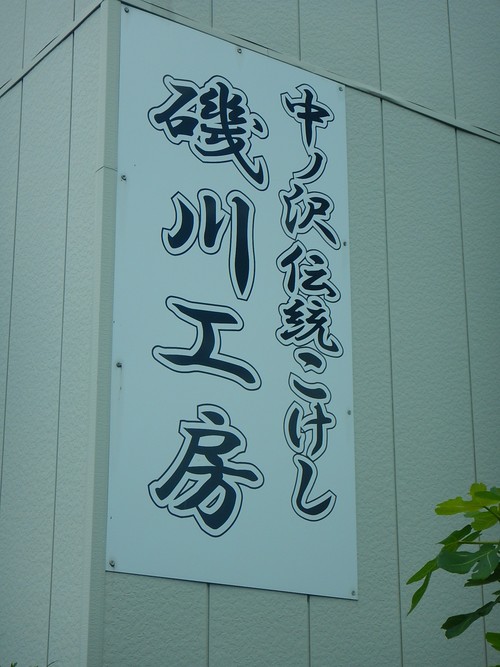 中ノ沢伝統こけし
磯川工房